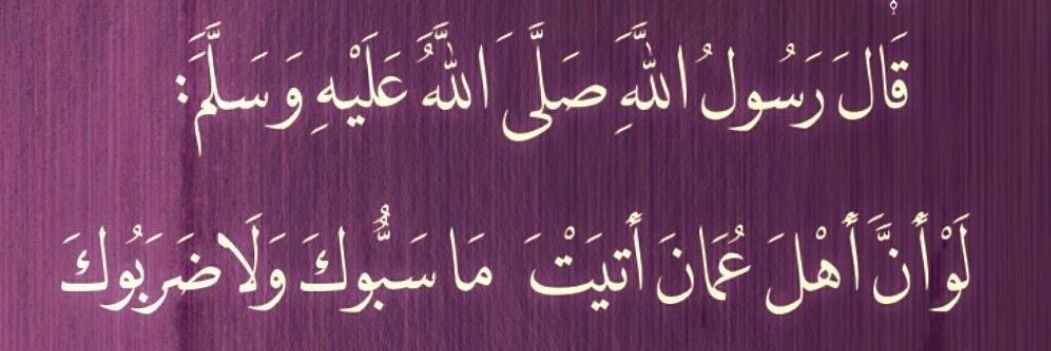 قَالَ رَسُولُ اللَّهِ صَلَّى اللَّهُ عَلَيْهِ وَسَلَّمَ:
لَوْ أَنَّ أَهْلَ عُمَانَ أَتَيْتَ مَا سَبُّوكَ وَلَا ضَرَبُوكَ